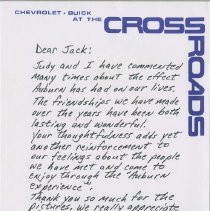 CHEVROLET - BUICK
AT THE CROSS
ROADS
Dear Jack:
Judy and I have commented
many times about the effect
Auburn has had on our lives.
The friendships we have made
over the years have been both
lasting and wonderful.
Your thoughtfulness adds yet
another reinforcement to
our feelings about the people
we have met and come to
enjoy through the "Auburn
Experience".
Thank you so much for the
pictures, we really appreciate